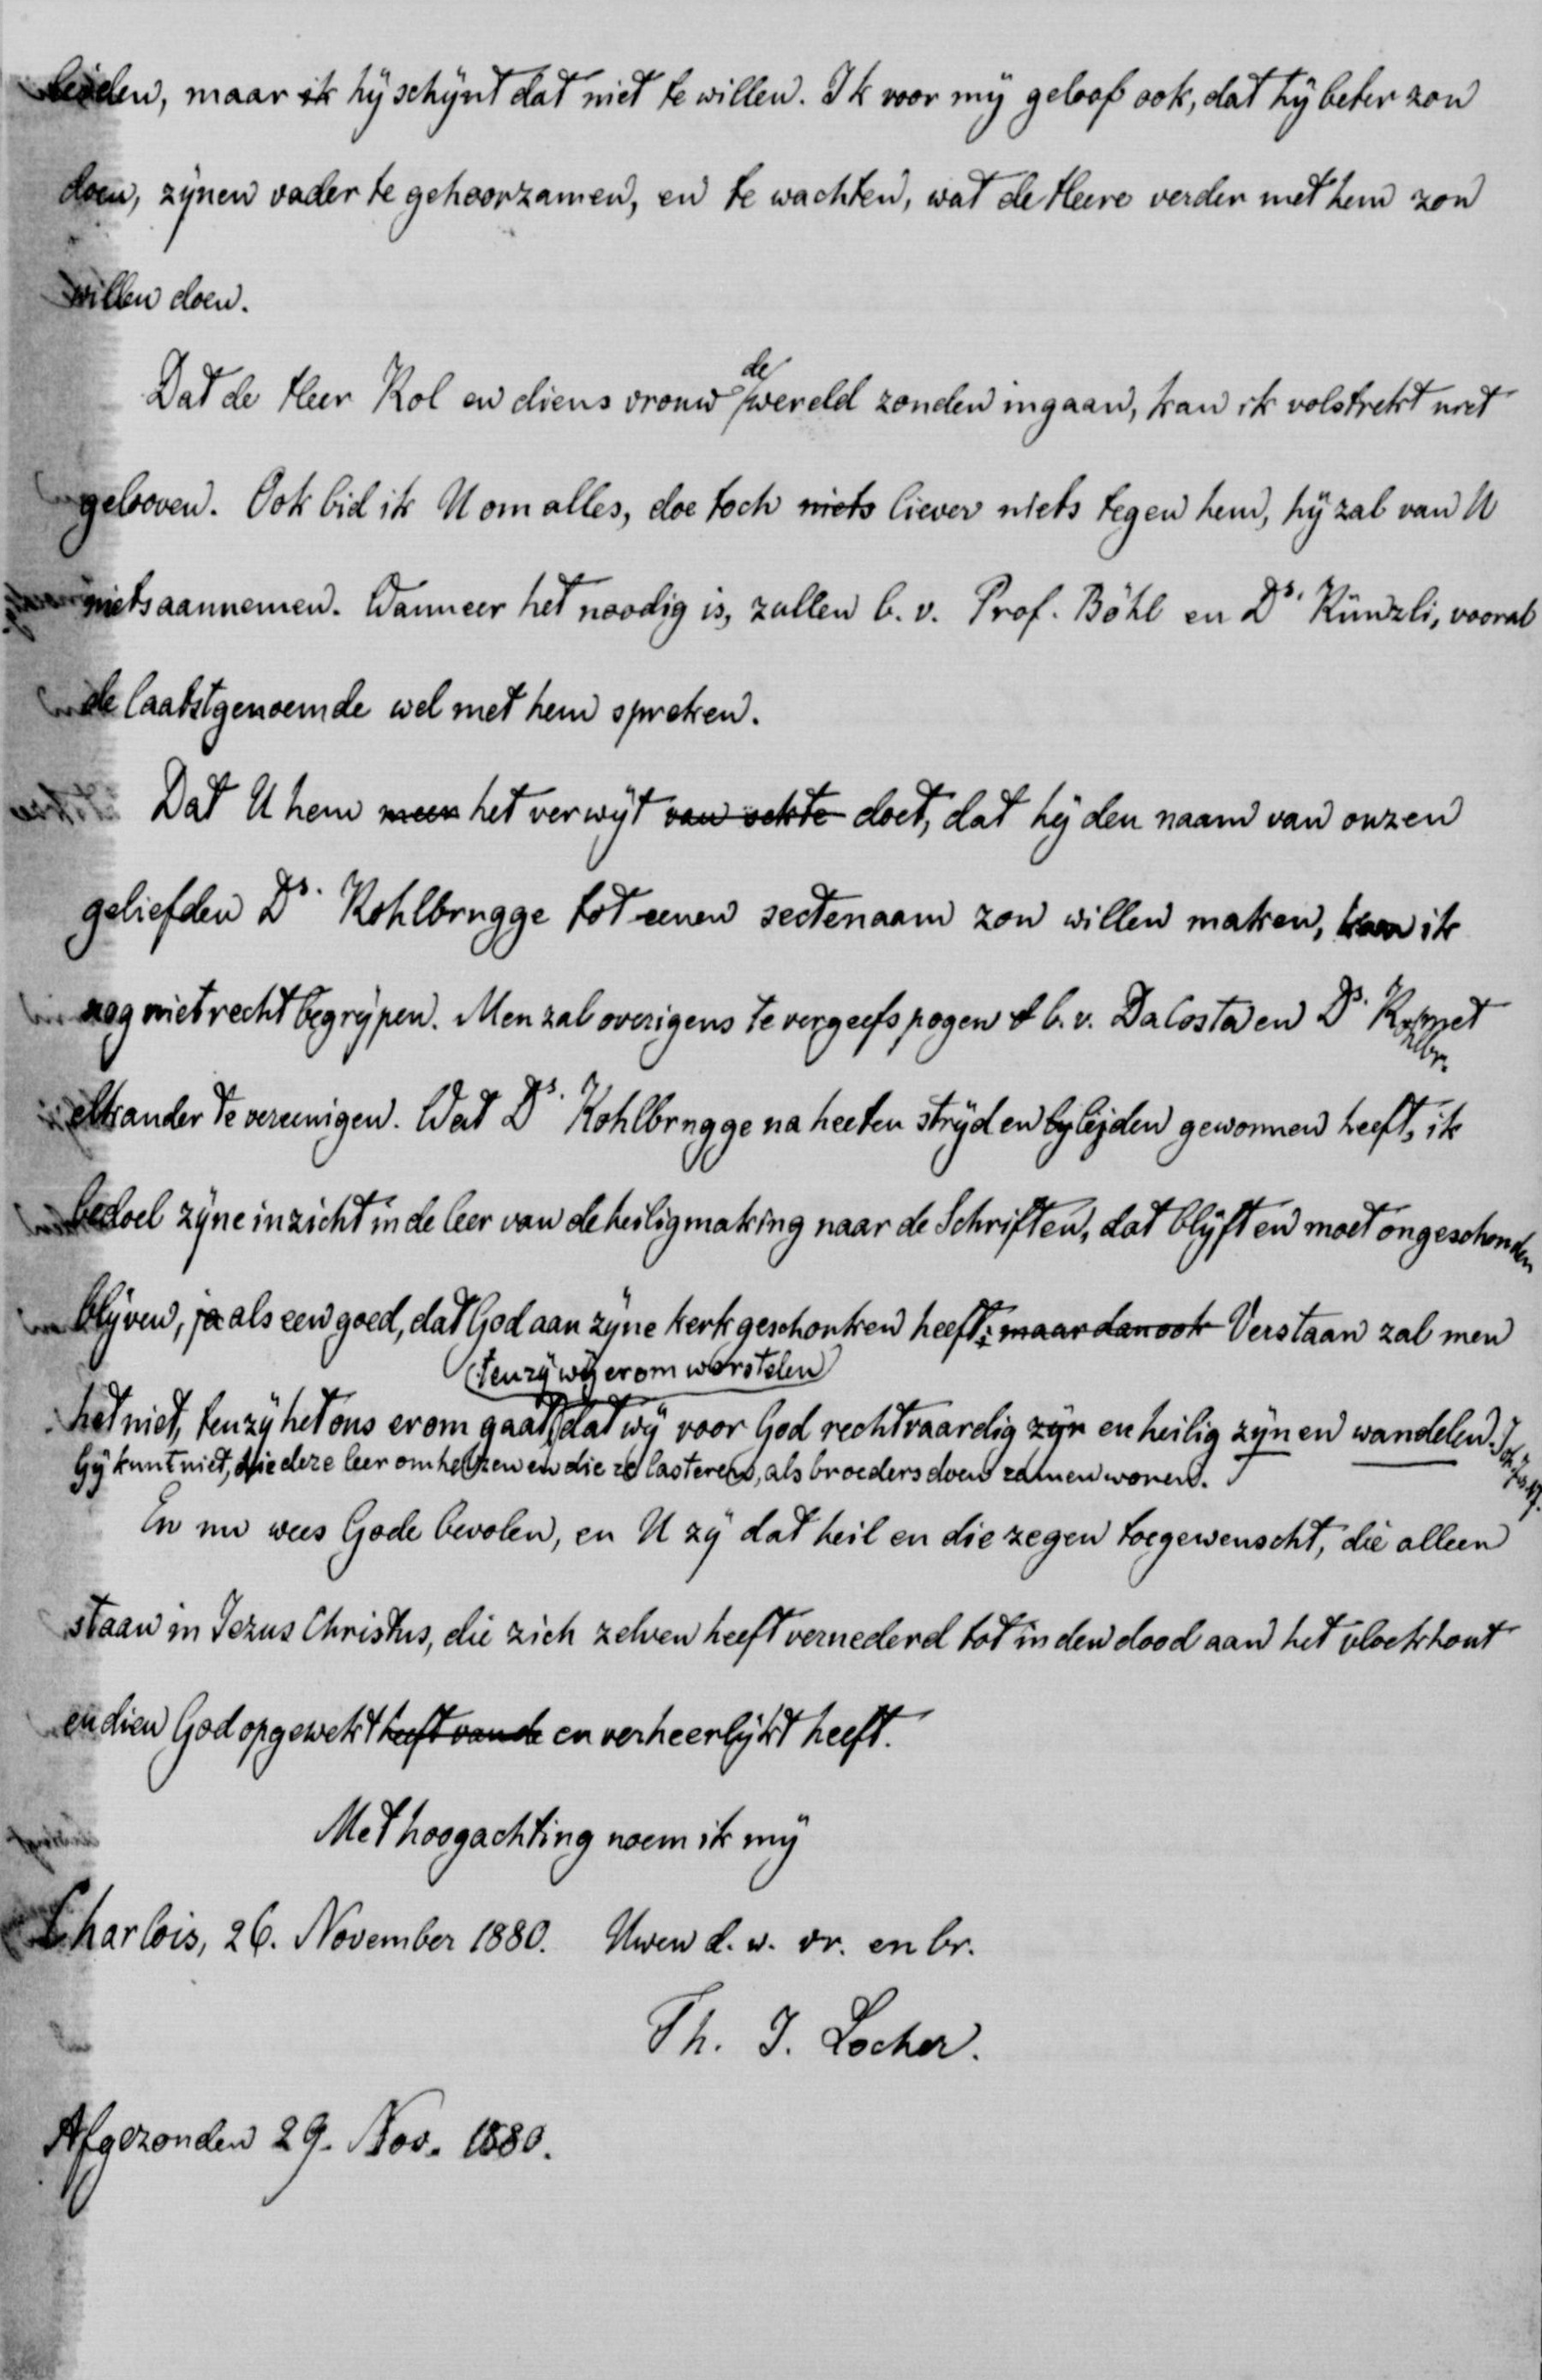 leiden, maar ik hij schijnt dat niet te willen. Ik voor mij geloof ook, dat hij beter zou
doen, zijnen vader te gehoorzamen, en te wachten, wat de Heere verder met hem zou
willen doen.
Dat de Heer Kol en diens vrouw de wereld zouden ingaan, kan ik volstrekt niet
gelooven. Ook bid ik U om alles, doe toch niets liever niets tegen hem, hij zal van U
niets aannemen. Wanneer het noodig is, zullen b. v. Prof. Böhl en Ds. Künzli, vooral
de laatstgenoemde wel met hem spreken.
Dat U hem meer het verwijt van sekte doet, dat hij den naam van onzen
geliefden Ds. Kohlbrugge tot eenen sectenaam zou willen maken, kan ik
nog niet recht begrijpen. Men zal overigens te vergeefs pogen b. v. Da Costa en Ds. Kohlbr. met
elkander te vereenigen. Wat Ds. Kohlbrugge na heeten strijd en lijden gewonnen heeft, ik
bedoel zijne inzicht in de leer van de heiligmaking naar de Schriften, dat blijft en moet ongeschonden
blijven, ja als een goed, dat God aan zijne kerk geschonken heeft; maar dan ook Verstaan zal men
(tenzij wij erom worstelen)
het niet, tenzij het ons erom gaat, dat wij voor God rechtvaardig zijn en heilig zijn en wandelen.
Gij kunt niet, die deze leer omhelzen en die ze lasteren, als broeders doen zamenwonen.
En nu wees Gode bevolen, en U zij dat heil en die zegen toegewenscht, die alleen
staan in Jezus Christus, die zich zelven heeft vernederd tot in den dood aan het vloekhout
en dien God opgewekt heeft van de en verheerlijkt heeft.
Met hoogachting noem ik mij
Charlois, 26. November 1880. Uwen d. w. vr. en br.
Th. J. Locher.
Afgezonden 29. Nov. 1880.